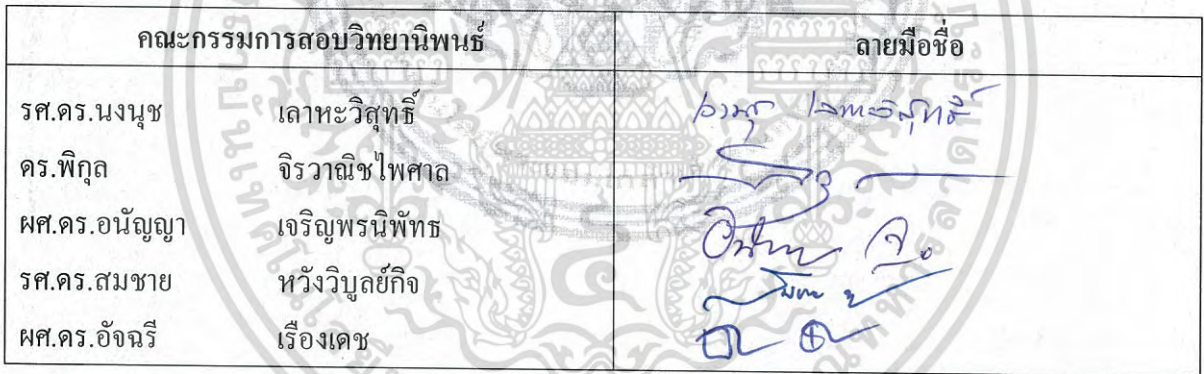 คณะกรรมการสอบวิทยานิพนธ์ ลายมือชื่อ
รศ.ดร.นงนุช เลาหะวิสุทธิ์ นงนุช เลาหะวิสุทธิ์
ดร.พิกุล จิรวาณิชไพศาล
ผศ.ดร.อนัญญา เจริญพรนิพัทธ
รศ.ดร.สมชาย หวังวิบูลย์กิจ
ผศ.ดร.อัจฉรี เรืองเดช